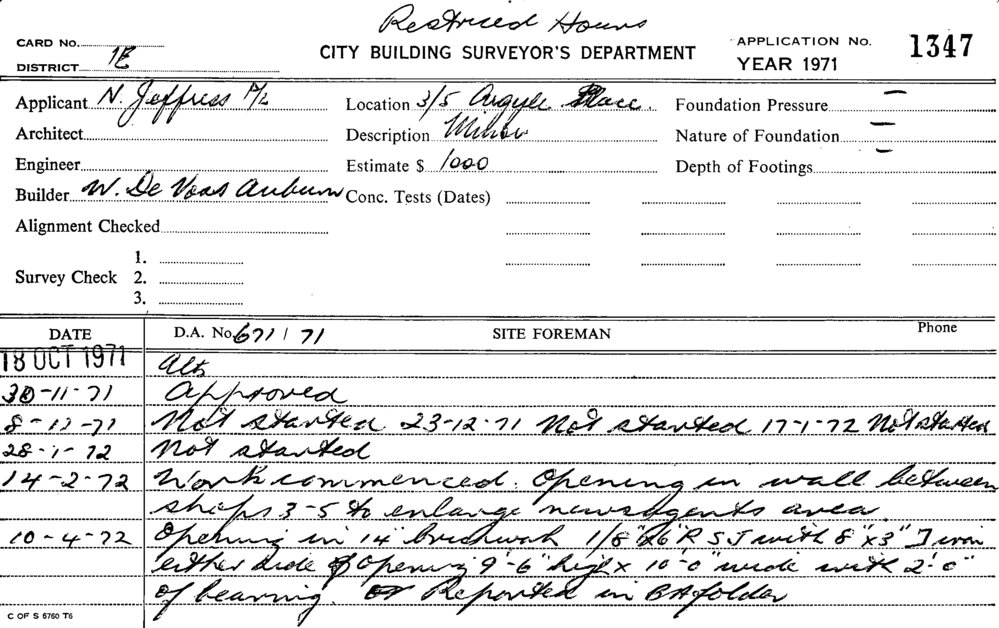 Restriced Hours
CARD No. CITY BUILDING SURVEYOR'S DEPARTMENT APPLICATION No. 1347
DISTRICT 1E YEAR 1971
Applicant N. Jeffress P/L Location 3/5 Argyle Place Foundation Pressure —
Architect Description Minor Nature of Foundation —
Engineer Estimate $ 1000 Depth of Footings —
Builder W. De Voas Auburn Conc. Tests (Dates)
Alignment Checked
1.
Survey Check 2.
3.
DATE D.A. No. 671 / 71 SITE FOREMAN Phone
18 OCT 1971 Alts
30-11-71 Approved
8-12-71 Not started 23-12-71 Not started 17-1-72 Not started
28-1-72 Not started
14-2-72 Work commenced. Opening in wall between
shops 3-5 to enlarge newsagents area
10-4-72 Opening in 14" brickwork 1/8"x6" R S J with 8"x3" J iron
either side of opening 9'-6" high x 10'-0" wide with 2'-0"
of bearing. Reported in BA folder
C OF S 6760 T6